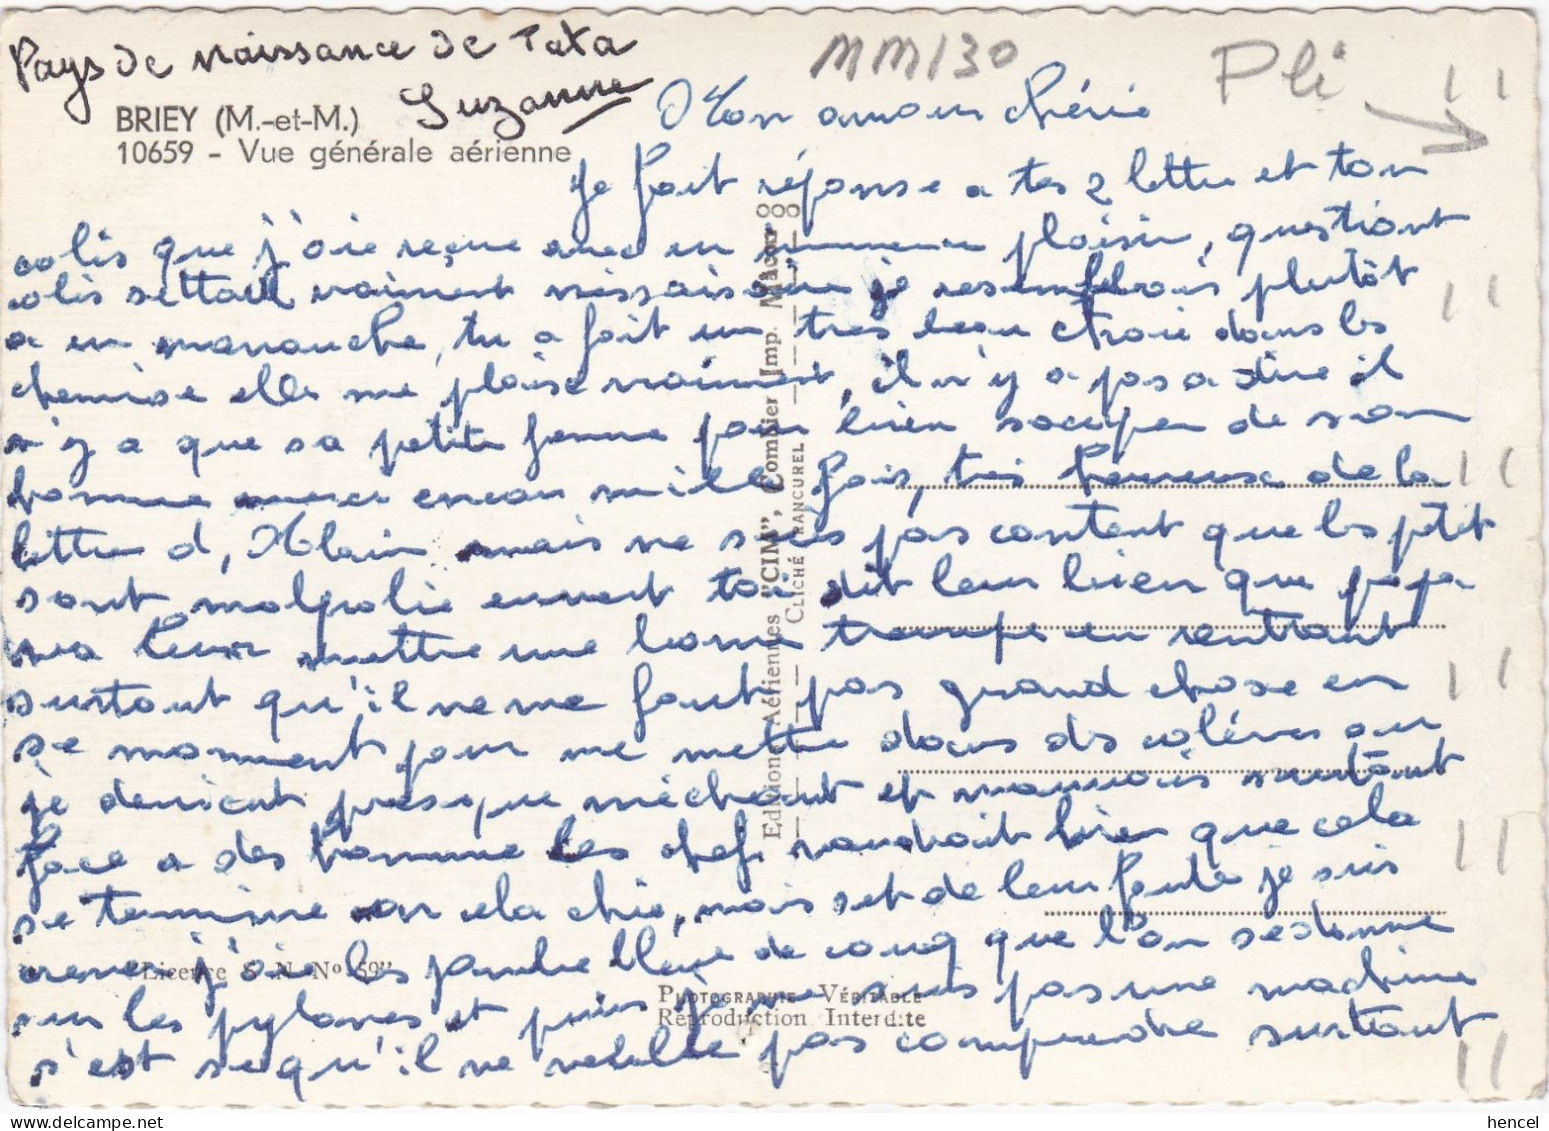 Pays de naissance de Tata
Suzanne
MM130
Pli
BRIEY (M.-et-M.)
10659 - Vue générale aérienne
Mon amour chérie
Je fait réponse a tes 2 lettre et ton
colis que j'oie reçue avec un plaisir, questiont
colis settait vraiment nissaisaire je resemblrais plutôt
a un manouche, tu a fait un tres beau choie dans les
chemise elle me plaise vraiment, il n'y a pas a dire il
n'y a que sa petite femme pour bien socuper de son
homme merci encor mille fois, très heureux de la
lettre d, Alain mais ne suis pas content que les ptit
sont malpolie envert toi dit leur bien que papa
va leur mettre une bonne trempe en rentrant
surtout qu'il ne me faut pas grand chose en
se momment pour me mettre dans des colères ou
je devient presque méchant et mauvais surtout
face a des homme les chefs voudrait bien que cela
se termine on ela chie, mais set de leur faute je suis
crever j'oie les jambe bleue de couq que l'on se donne
sur les pylones et puis je ne suis pas une machine
s'est se qu'il ne veulle pas comprendre surtout
Editions Aériennes "CIM", Combier Imp. Macon
CLICHÉ FRANCUREL
"Licence S. N. No 59"
PHOTOGRAPHIE VÉRITABLE
Reproduction Interdite
hencel